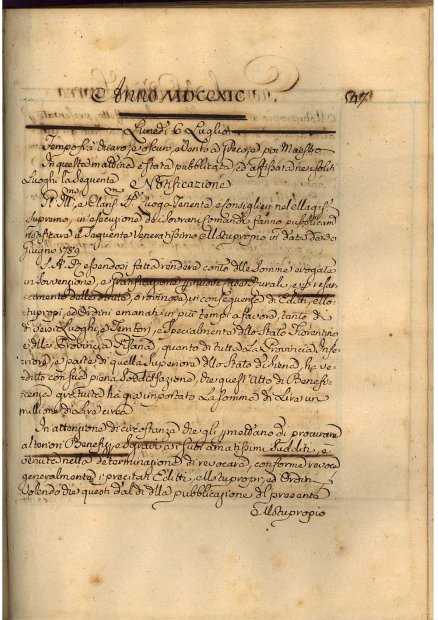 Anno MDCCXIC
547
Lunedì 6 Luglio
Tempo frà diaro, e oscuro, e Vento a Libeccio per Maestro
In questa mattina è stata pubblicata, ed affissata nei soliti
Luoghi la seguente Notificazione
Gl' Ill.mi, e Clariss.mi Luogo Tenente e Consiglieri nel Magis.
Supremo, in esecuzione di Sovrani Comandi fanno pubblicam.
notificare il seguente Veneratissimo Mstupropio in data da 30
Giugno 1789
S. A. R. essendosi fatta rendere conto delle Somme erogate
in sovvenzione, e gratificazione per nuove case Rurali, e per restar-
camento delle dirute, o rovinose in conseguenza di Editti, e Mo-
tupropi, ed Ordini emanati in più tempi a favore, tanto di
diversi Luoghi, e Territori, e specialmente dello Stato Fiorentino
e della Provincia Pisana, quanto di tutta La Provincia Infe-
riore, e parte di quella Superiore dello Stato di Siena, ha ve-
duto con sua piena Soddisfazione, che quest' Atto di Benefi-
cenza gratuita ha già importato La Somma di Lire un
millione di Lire circa
In attenzione di circostanze che gli permettano di procurare
altronde Benefizj, e Sgravi ai suoi amatissimi Sudditi, è
venuta nella determinazione di revocare, conforme revoca
generalmente i precitati Editti, Mstupropi, ed Ordini
Volendo che questi dal dì della pubblicazione del presente
Mstupropio